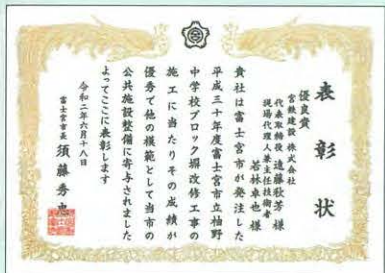 表彰状
優良賞
宮鉄建設 株式会社
代表取締役 遠藤秋芳 様
現場代理人兼主任技術者
若林卓也 様
貴社は富士宮市が発注した
平成三十年度富士宮市立柚野
中学校ブロック塀改修工事の
施工に当たりその成績が
優秀で他の模範として当市の
公共施設整備に寄与されました
よってここに表彰します
令和二年六月十八日
富士宮市長 須藤秀忠